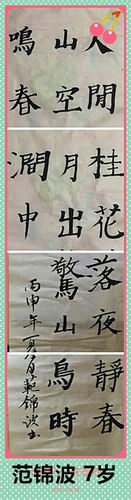 人閒桂花落夜靜春
山空月出驚山鳥時
鳴春澗中
丙申年 範錦波书
范锦波 7岁